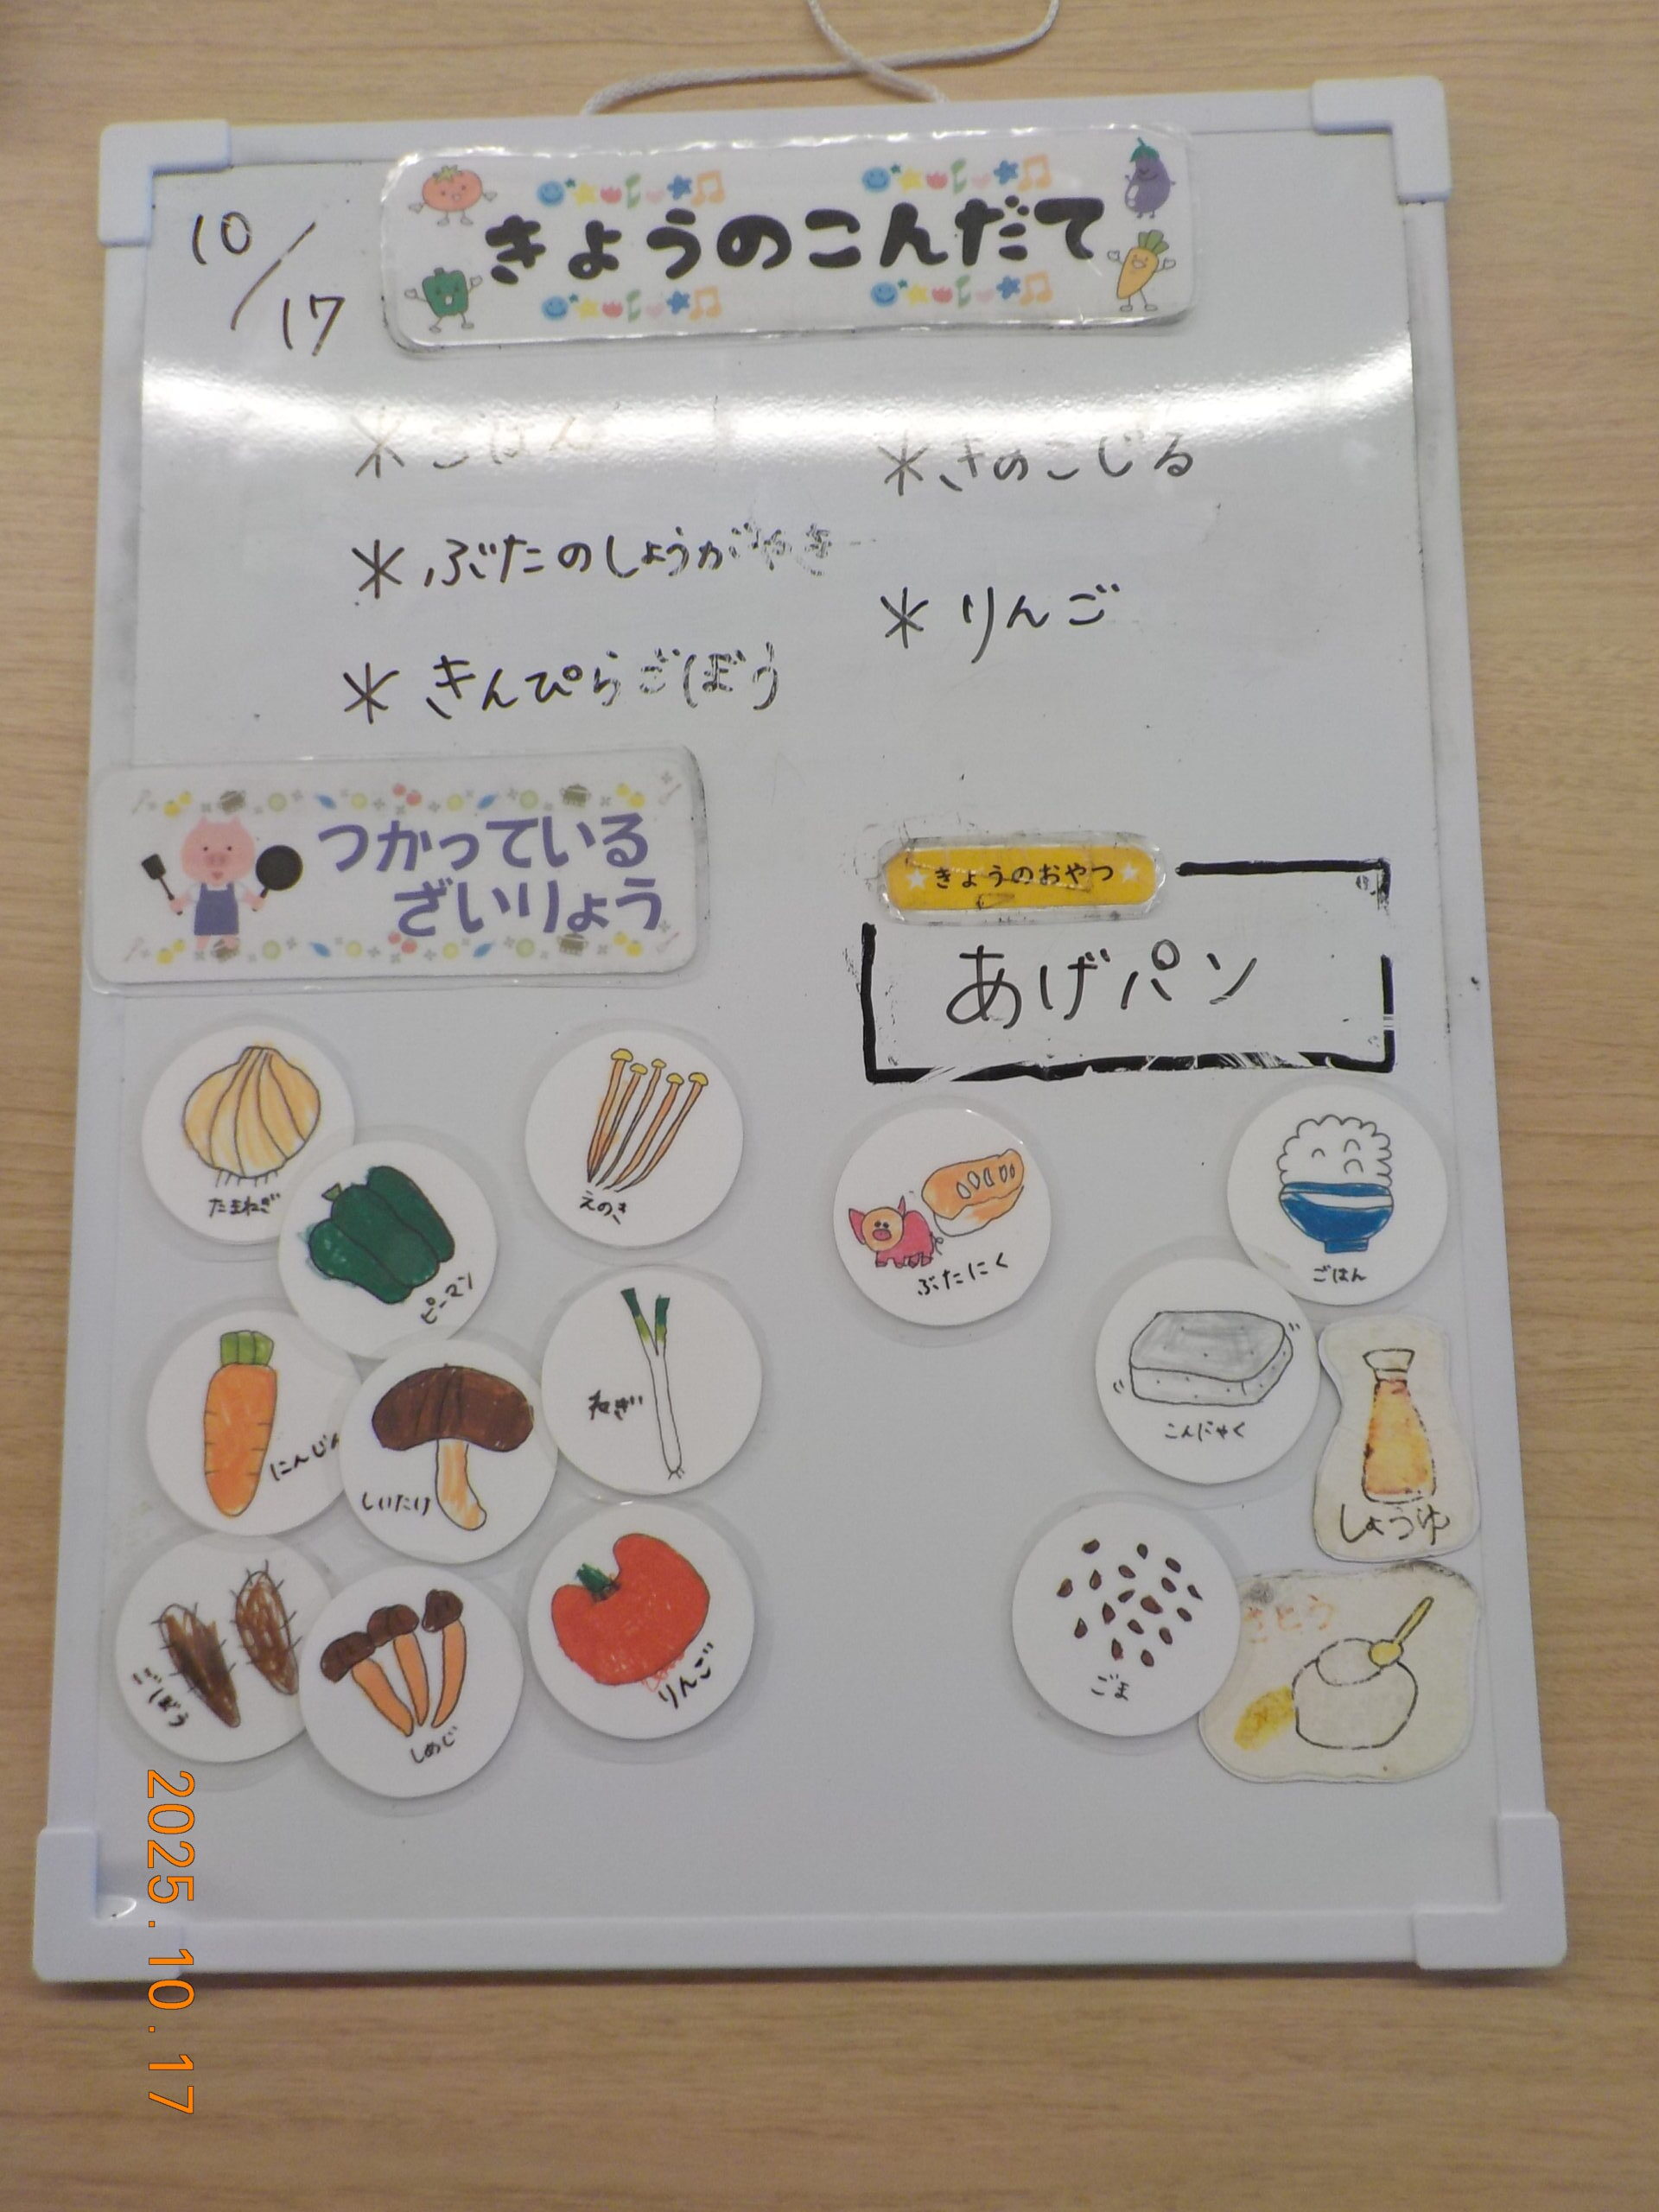 10/17
きょうのこんだて
＊ごはん
＊ぶたのしょうがやき
＊きんぴらごぼう
＊きのこじる
＊りんご
つかっている
ざいりょう
きょうのおやつ
あげパン
たまねぎ
ピーマン
えのき
にんじん
しいたけ
ねぎ
ごぼう
しめじ
りんご
ぶたにく
ごはん
こんにゃく
しょうゆ
ごま
さとう
2025.10.17